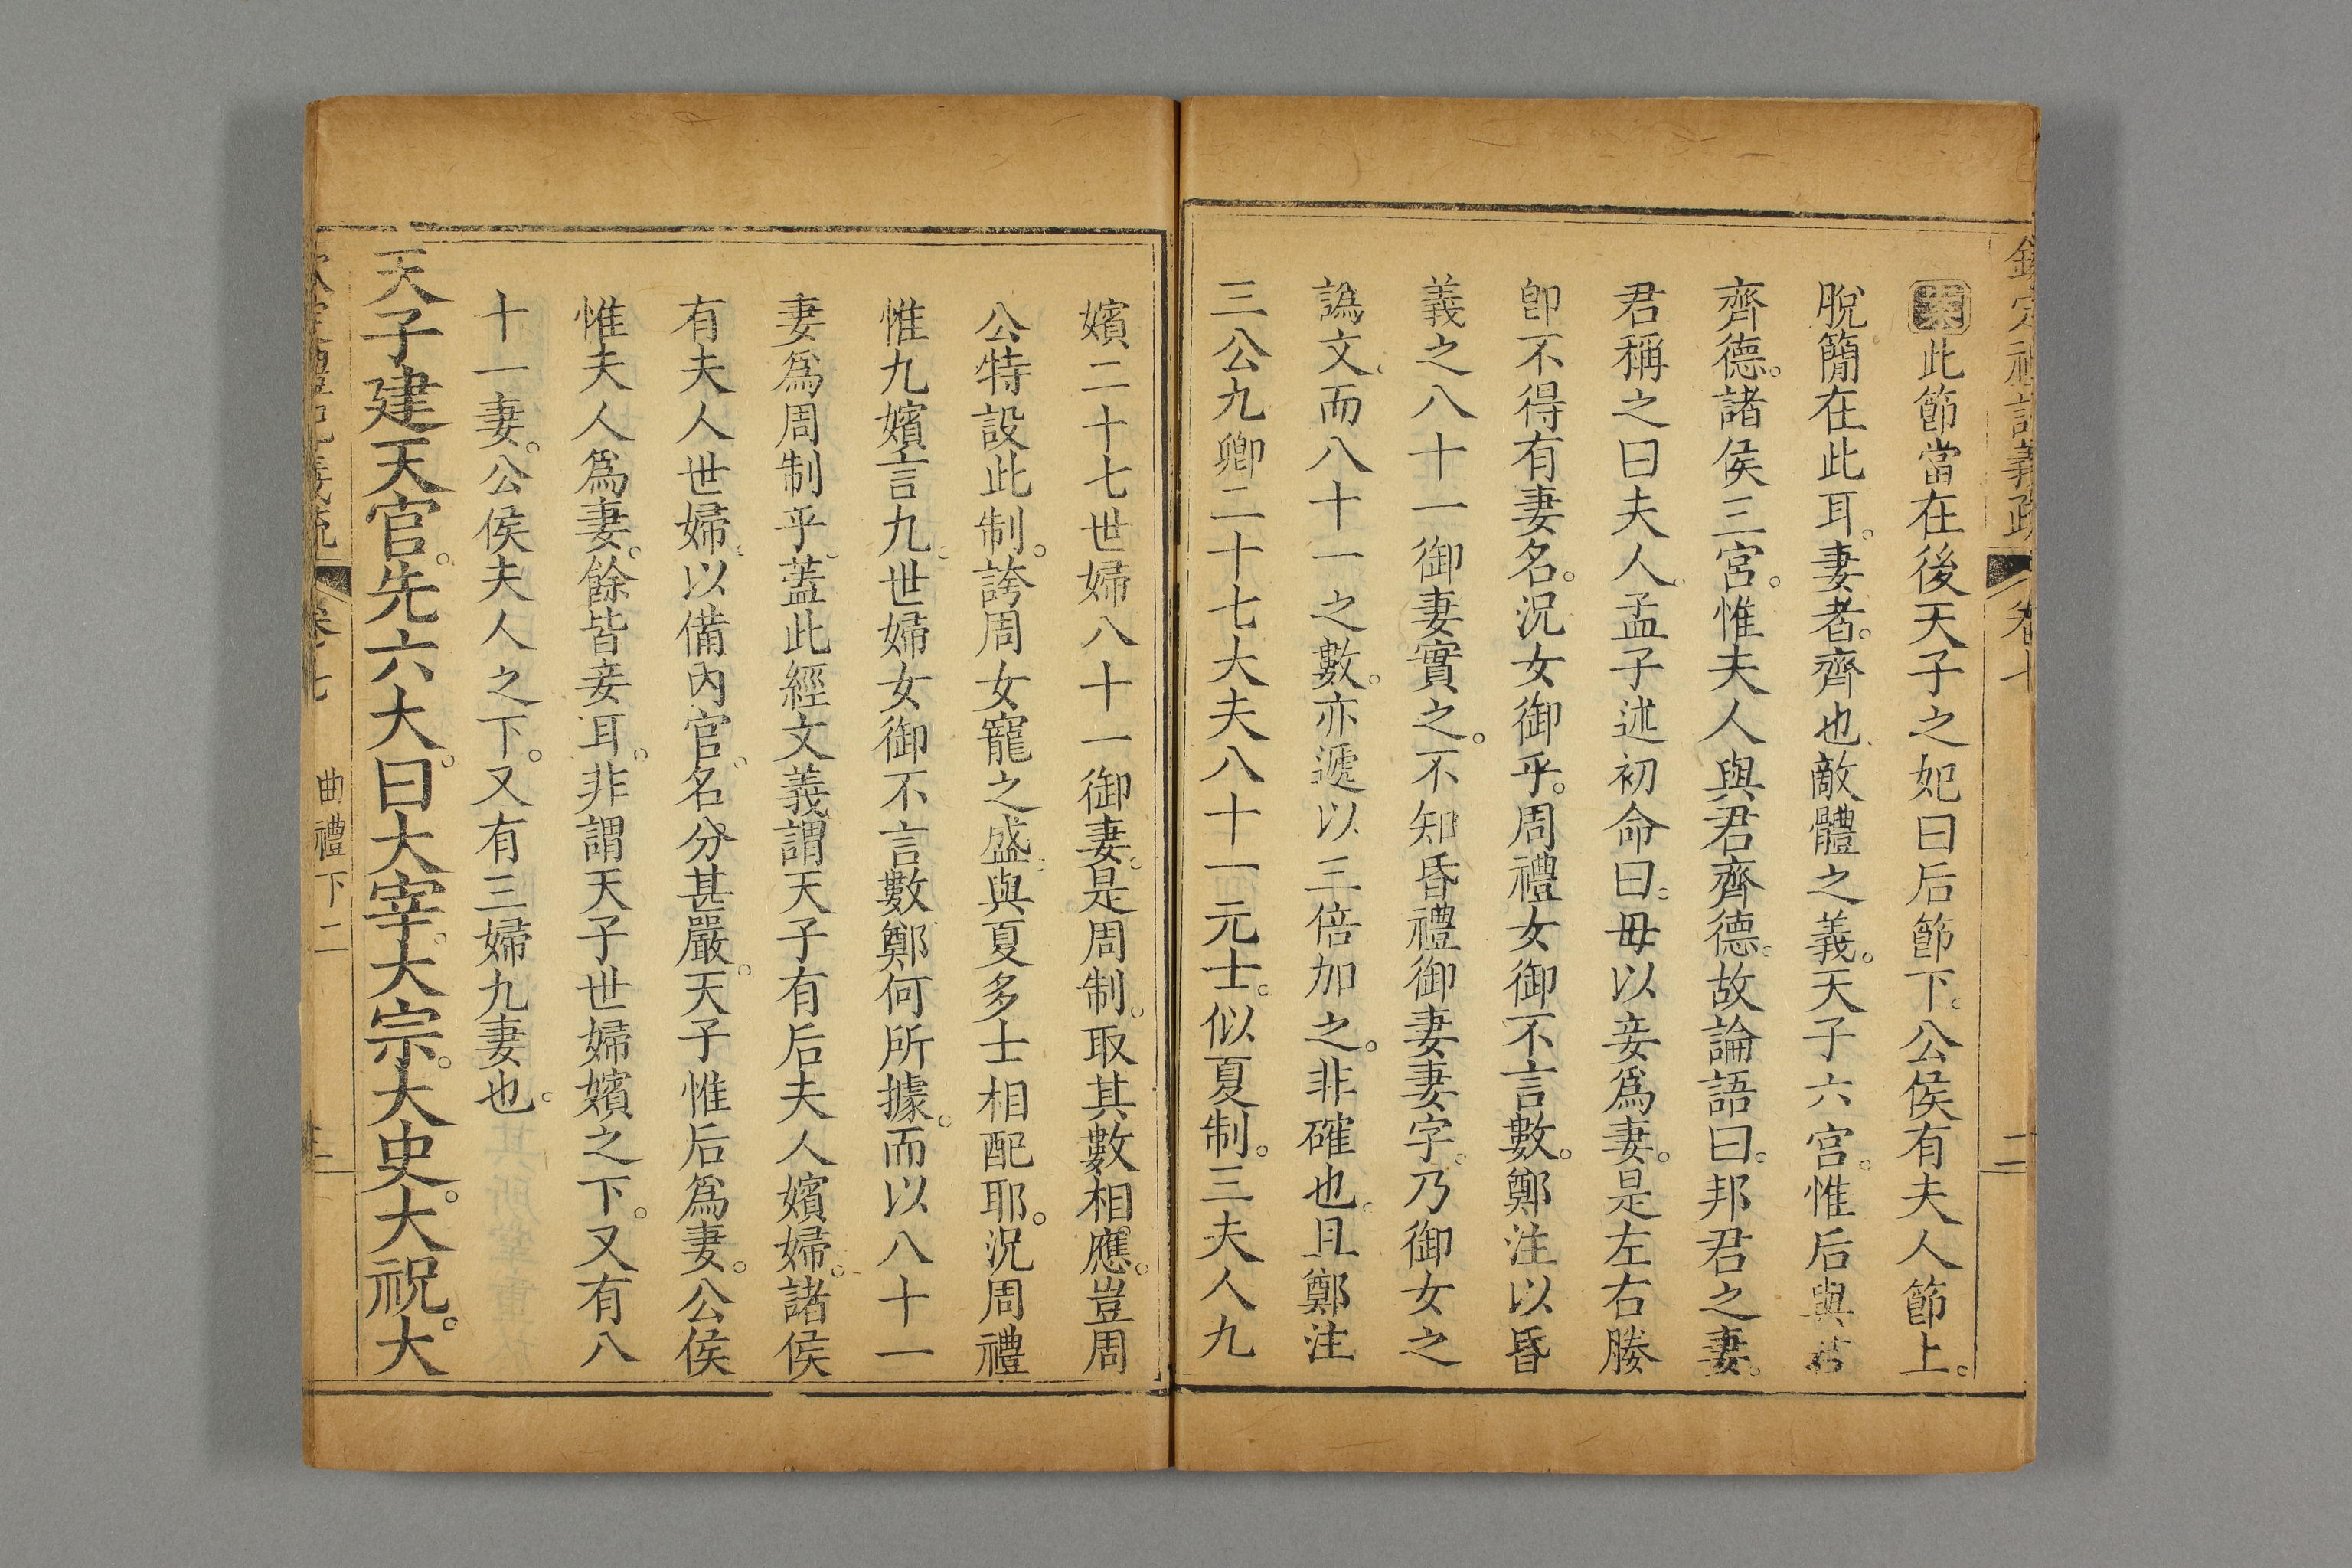 欽定禮記義疏 卷七 二
案此節當在後天子之妃曰后節下。公侯有夫人節上。
脫簡在此耳。妻者。齊也。敵體之義。天子六宮。惟后與君
齊德。諸侯三宮。惟夫人與君齊德。故論語曰。邦君之妻。
君稱之曰夫人。孟子述初命曰。毋以妾爲妻。是左右媵
卽不得有妻名。況女御乎。周禮女御不言數。鄭注以昏
義之八十一御妻實之。不知昏禮御妻妻字。乃御女之
譌文。而八十一之數。亦遞以三倍加之。非確也。且鄭注
三公九卿二十七大夫八十一元士。似夏制。三夫人九
嬪二十七世婦八十一御妻。是周制。取其數相應。豈周
公特設此制。誇周女寵之盛。與夏多士相配耶。況周禮
惟九嬪言九。世婦女御不言數。鄭何所據。而以八十一
妻爲周制乎。蓋此經文義謂天子有后夫人嬪婦。諸侯
有夫人世婦。以備內官。名分甚嚴。天子惟后爲妻。公侯
惟夫人爲妻。餘皆妾耳。非謂天子世婦嬪之下。又有八
十一妻。公侯夫人之下。又有三婦九妻也。
天子建天官。先六大。曰大宰。大宗。大史。大祝。大
欽定禮記義疏 卷七 曲禮下二